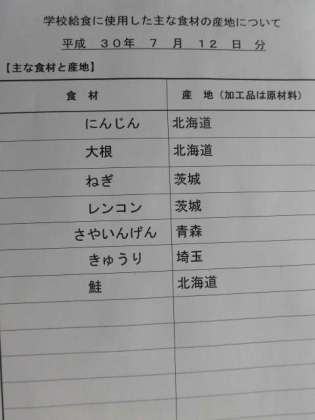 学校給食に使用した主な食材の産地について
平成 30年 7 月 12 日 分
【主な食材と産地】
食 材 産 地（加工品は原材料）
にんじん 北海道
大根 北海道
ねぎ 茨城
レンコン 茨城
さやいんげん 青森
きゅうり 埼玉
鮭 北海道